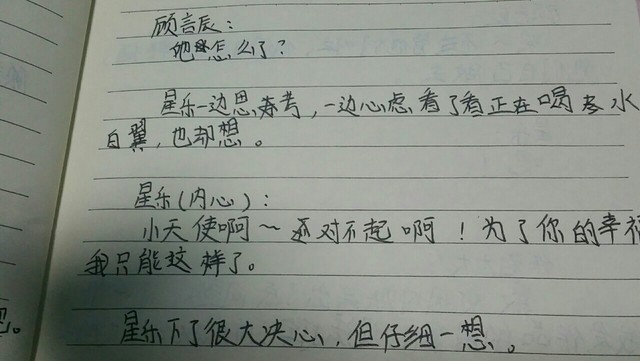 顾言辰：
他怎么了？
星乐一边思考，一边心虑看了看正在喝水
白翼，也却想。
星乐（内心）：
小天使啊～还对不起啊！为了你的幸福
我只能这样了。
星乐下了很大决心，但仔细一想。